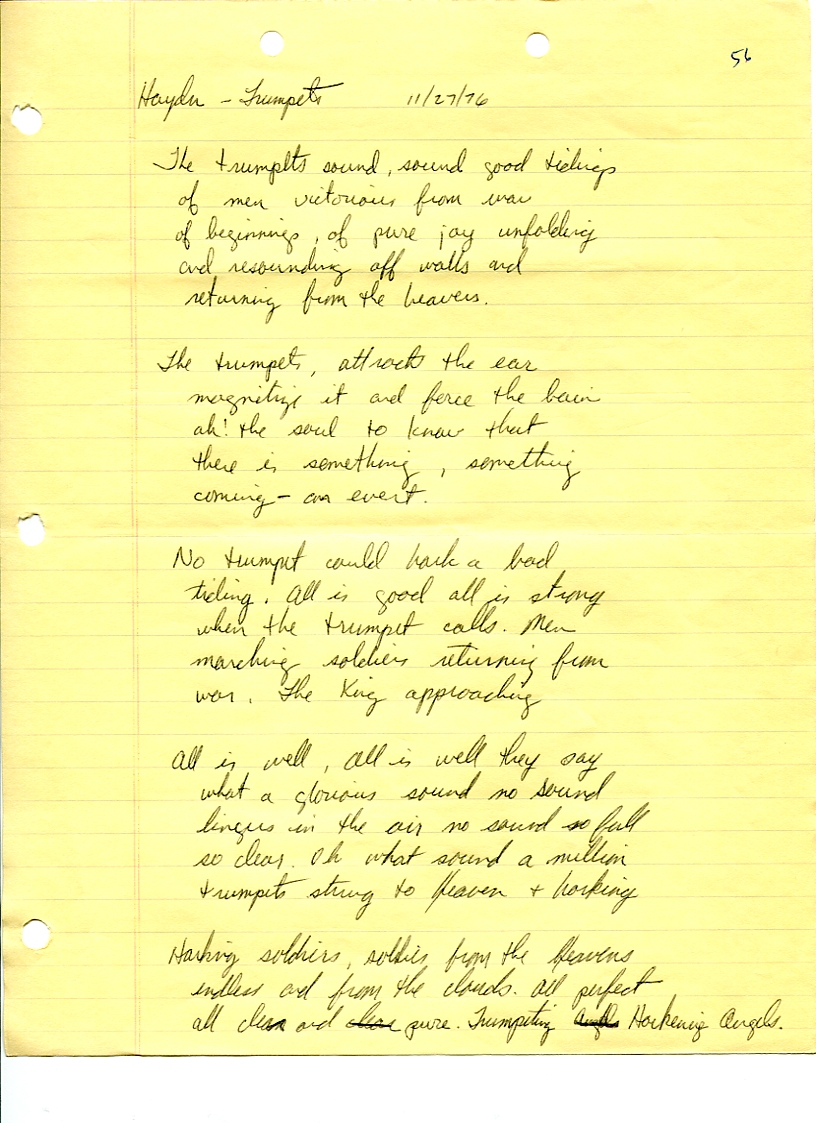 56
Haydn - Trumpets 11/27/76
The trumpets sound, sound good tidings
of men victorious from war
of beginnings, of pure joy unfolding
and resounding off walls and
returning from the heavens.
The trumpets, attracts the ear
magnitize it and force the bain
ah! the soul to know that
there is something, something
coming - an event.
No trumpet could hark a bad
tiding. All is good all is strong
when the trumpet calls. Men
marching soldiers returning from
war. The King approaching
All is well, all is well they say
what a glorious sound no sound
lingers in the air no sound so full
so clear. Oh what sound a million
trumpets strung to Heaven + harking
Harking soldiers, soldies from the Heavens
endless and from the clouds. All perfect
all clean and clear pure. Trumpeting Angels Harkening Angels.